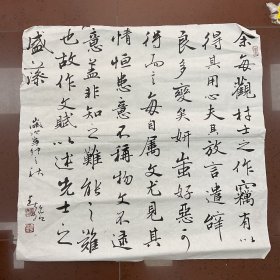 余每觀材士之作竊有以
得其用心夫其放言遣辭
良多變矣妍蚩好惡可
得而言每自屬文尤見其
情恒患意不稱物文不逮
意蓋非知之難能之難
也故作文賦以述先士之
盛藻